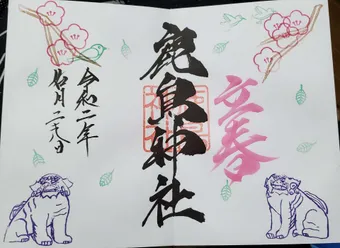 立春
鹿島神社
令和二年
弐月二十九日